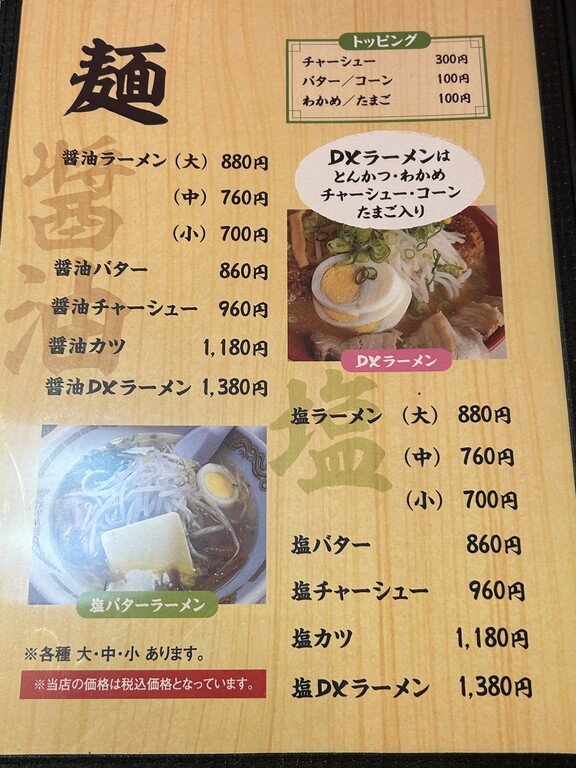 麺
トッピング
チャーシュー 300円
バター／コーン 100円
わかめ／たまご 100円
醤油
醤油ラーメン（大） 880円
（中） 760円
（小） 700円
醤油バター 860円
醤油チャーシュー 960円
醤油カツ 1,180円
醤油DXラーメン 1,380円
DXラーメンは
とんかつ・わかめ
チャーシュー・コーン
たまご入り
DXラーメン
塩
塩ラーメン （大） 880円
（中） 760円
（小） 700円
塩バター 860円
塩チャーシュー 960円
塩カツ 1,180円
塩DXラーメン 1,380円
塩バターラーメン
※各種 大・中・小 あります。
※当店の価格は税込価格となっています。